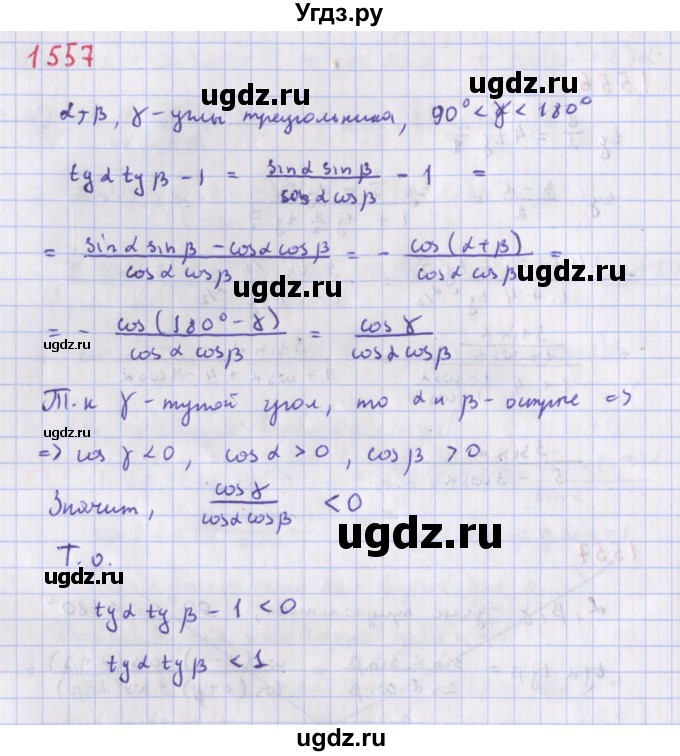 Угдз.ру
1557
ugdz.ru
α, β, γ - углы треугольника, 90° < γ < 180°
ugdz.ru
ugdz.ru
tg α tg β - 1 = sin α sin β / cos α cos β - 1 =
= sin α sin β - cos α cos β / cos α cos β = - cos (α + β) / cos α cos β =
ugdz.ru
ugdz.ru
= - cos (180° - γ) / cos α cos β = cos γ / cos α cos β
ugdz.ru
ugdz.ru
Т.к γ - тупой угол, то α и β - острые =>
=> cos γ < 0, cos α > 0, cos β > 0.
Значит, cos γ / cos α cos β < 0
ugdz.ru
Т.о.
ugdz.ru
tg α tg β - 1 < 0
ugdz.ru
tg α tg β < 1
ugdz.ru